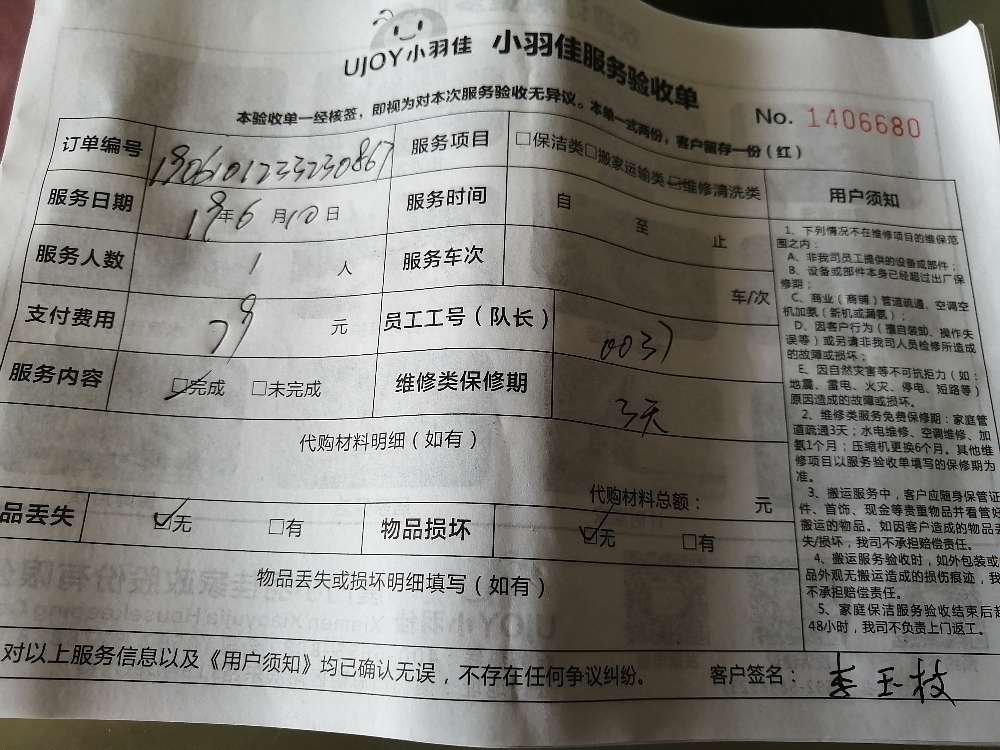 UJOY小羽佳 小羽佳服务验收单
本验收单一经核签，即视为对本次服务验收无异议。本单一式两份，客户留存一份（红）
No. 1406680
订单编号 190610123323086
服务项目 □保洁类□搬家运输类☑维修清洗类
服务日期 19年6月10日
服务时间 自 至 止
服务人数 1 人
服务车次 车/次
支付费用 79 元
员工工号（队长） 0037
服务内容 ☑完成 □未完成
维修类保修期 3天
代购材料明细（如有）
代购材料总额： 元
品丢失 ☑无 □有
物品损坏 ☑无 □有
物品丢失或损坏明细填写（如有）
对以上服务信息以及《用户须知》均已确认无误，不存在任何争议纠纷。
客户签名：李玉枝
用户须知
1、下列情况不在维修项目的维保范
围之内：
A、非我司员工提供的设备或部件；
B、设备或部件本身已经超过出厂保
修期；
C、商业（商铺）管道疏通、空调空
机加氨（新机或漏氨）；
D、因客户行为（擅自装卸、操作失
误等）或另请非我司人员检修所造成
的故障或损坏；
E、因自然灾害等不可抗拒力（如：
地震、雷电、火灾、停电、短路等）
原因造成的故障或损坏。
2、维修类服务免费保修期：家庭管
道疏通3天；水电维修、空调维修、加
氨1个月；压缩机更换6个月。其他维
修项目以服务验收单填写的保修期为
准。
3、搬运服务中，客户应随身保管证
件、首饰、现金等贵重物品并看管好
搬运的物品。如因客户造成的物品丢
失/损坏，我司不承担赔偿责任。
4、搬运服务验收时，如外包装或
品外观无搬运造成的损伤痕迹，我
不承担赔偿责任。
5、家庭保洁服务验收结束后超
48小时，我司不负责上门返工。